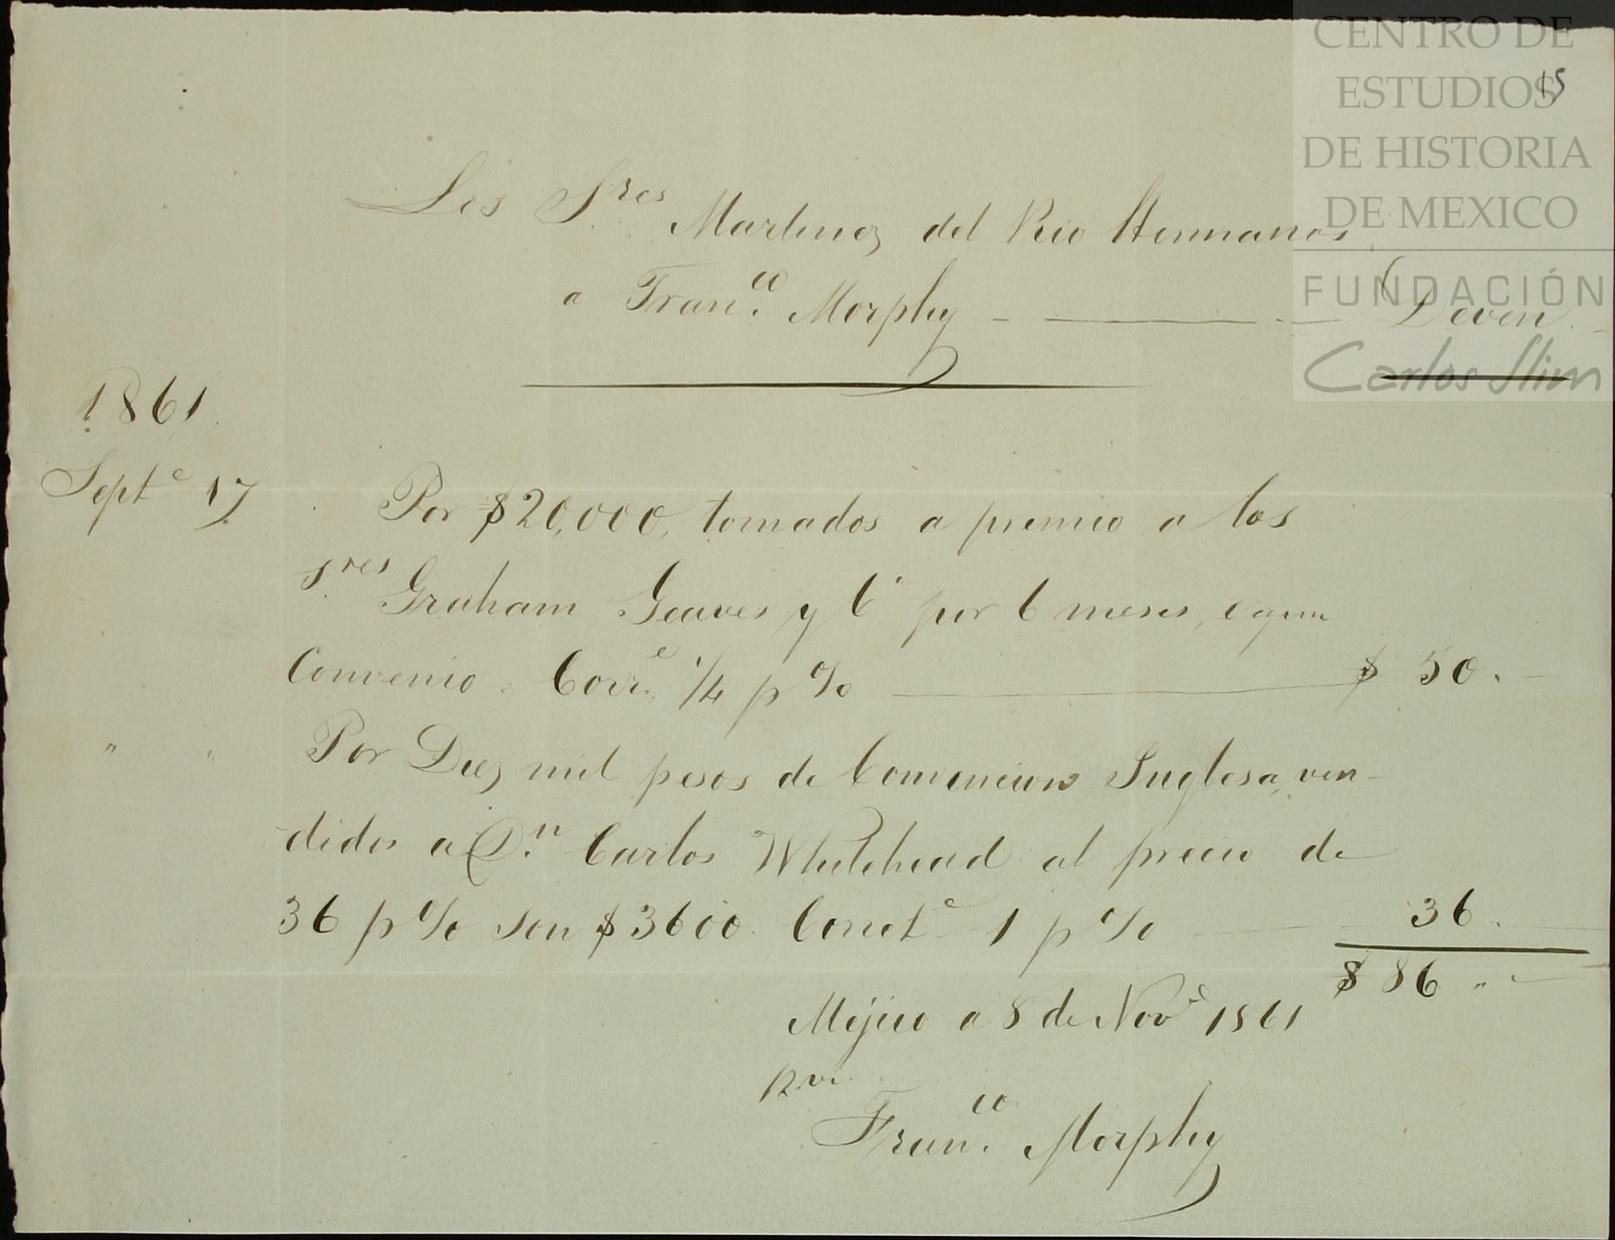 CENTRO DE
ESTUDIOS
DE HISTORIA
DE MEXICO
FUNDACIÓN
Carlos Slim
15
Los Sres Martinez del Rio Hermanos
a Franco. Morphy Deven
1861
Septe 17 Por $20,000, tomados a premio a los
Sres Graham Geaves y Ca por 6 meses, segun
Convenio Corre. 1/4 p% $ 50.
" " Por Diez mil pesos de Convencion Inglesa, ven-
didos a Dn. Carlos Whitehead al precio de
36 p% son $3600 Correte 1 p% 36.
$ 86
Mejico a 8 de Nove 1861
Franco. Morphy